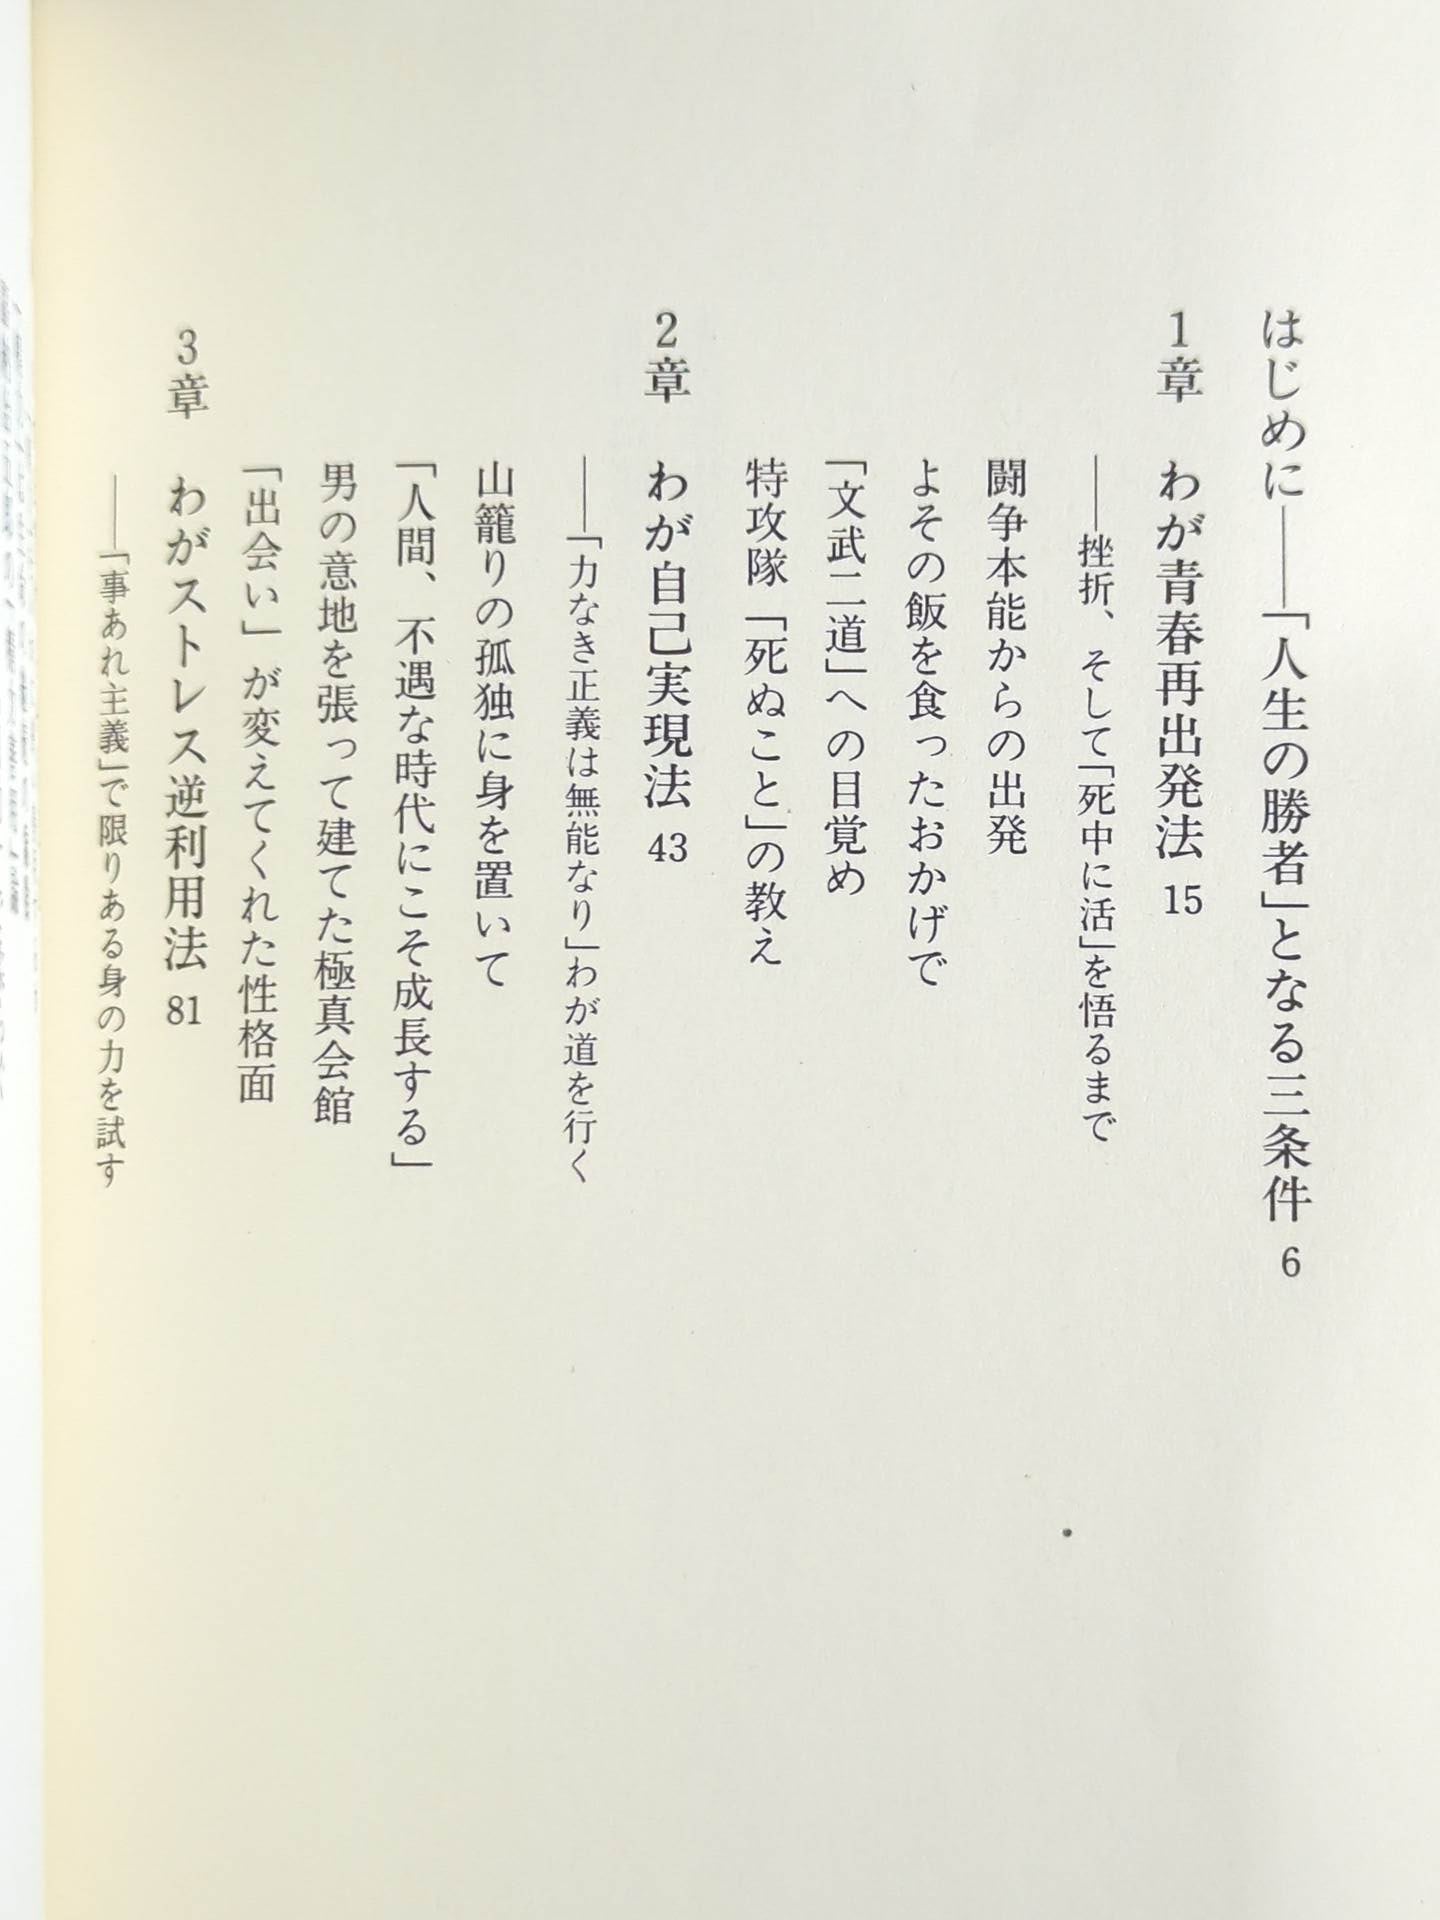 はじめに――「人生の勝者」となる三条件 6
1章 わが青春再出発法 15
――挫折、そして「死中に活」を悟るまで
闘争本能からの出発
よその飯を食ったおかげで
「文武二道」への目覚め
特攻隊「死ぬこと」の教え
2章 わが自己実現法 43
――「力なき正義は無能なり」わが道を行く
山籠りの孤独に身を置いて
「人間、不遇な時代にこそ成長する」
男の意地を張って建てた極真会館
「出会い」が変えてくれた性格面
3章 わがストレス逆利用法 81
――「事あれ主義」で限りある身の力を試す